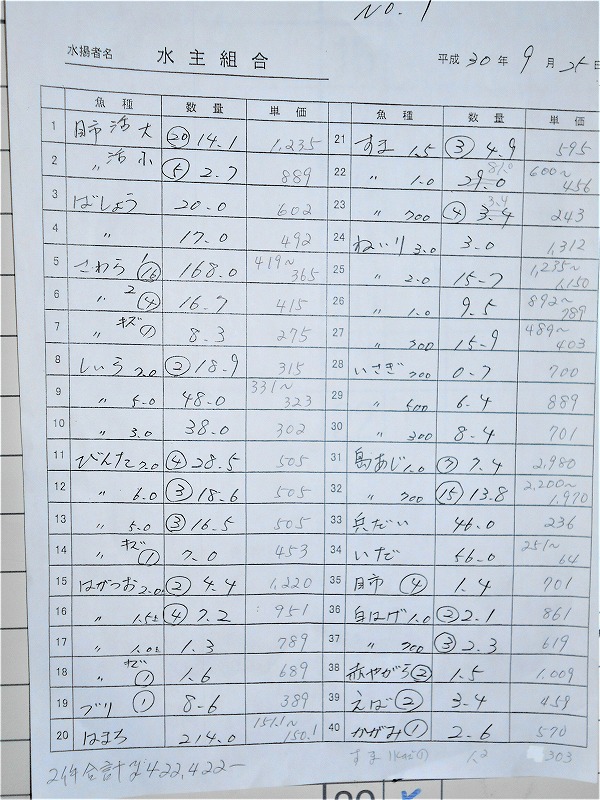 No. 1
水揚者名 水主組合 平成 30 年 9 月 25 日
魚種 数量 単価 魚種 数量 単価
1 目市 活大 ⑳ 14.1 1,235
2 〃 活小 ⑤ 2.7 889
3 ばしょう 20.0 602
4 〃 17.0 492
5 さわら 1 ⑯ 168.0 419~365
6 〃 2 ④ 16.7 415
7 〃 キズ ① 8.3 275
8 しいら 7.0 ② 18.9 315
9 〃 5.0 48.0 331~323
10 〃 3.0 38.0 302
11 びんた 7.0 ④ 28.5 505
12 〃 6.0 ③ 18.6 505
13 〃 5.0 ③ 16.5 505
14 〃 キズ ① 7.0 453
15 はがつお 2.0上 ② 4.4 1,220
16 〃 1.5上 ④ 7.2 951
17 〃 1.0上 1.3 789
18 〃 キズ ① 1.6 689
19 ブリ ① 8.6 389
20 はまち 214.0 151.1~150.1
21 すま 1.5 ③ 4.9 595
22 〃 1.0 29.0 81.0 600~456
23 〃 700 ④ 3.4 3.4 243
24 ねいり 3.0 3.0 1,312
25 〃 2.0 15.7 1,235~1,150
26 〃 1.0 9.5 892~789
27 〃 700 15.9 489~403
28 いさぎ 700 0.7 700
29 〃 500 6.4 889
30 〃 300 8.4 701
31 島あじ 1.0 ⑦ 7.4 2,980
32 〃 700 ⑮ 13.8 2,200~1,970
33 兵だい 46.0 236
34 いだ 56.0 251~64
35 目市 ④ 1.4 701
36 白はげ 1.0 ② 2.1 861
37 〃 700 ③ 2.3 619
38 赤やがら ② 1.5 1,009
39 えば ② 3.4 459
40 かがみ ① 2.6 570
すま 1.2 303
2件合計 422,422ー